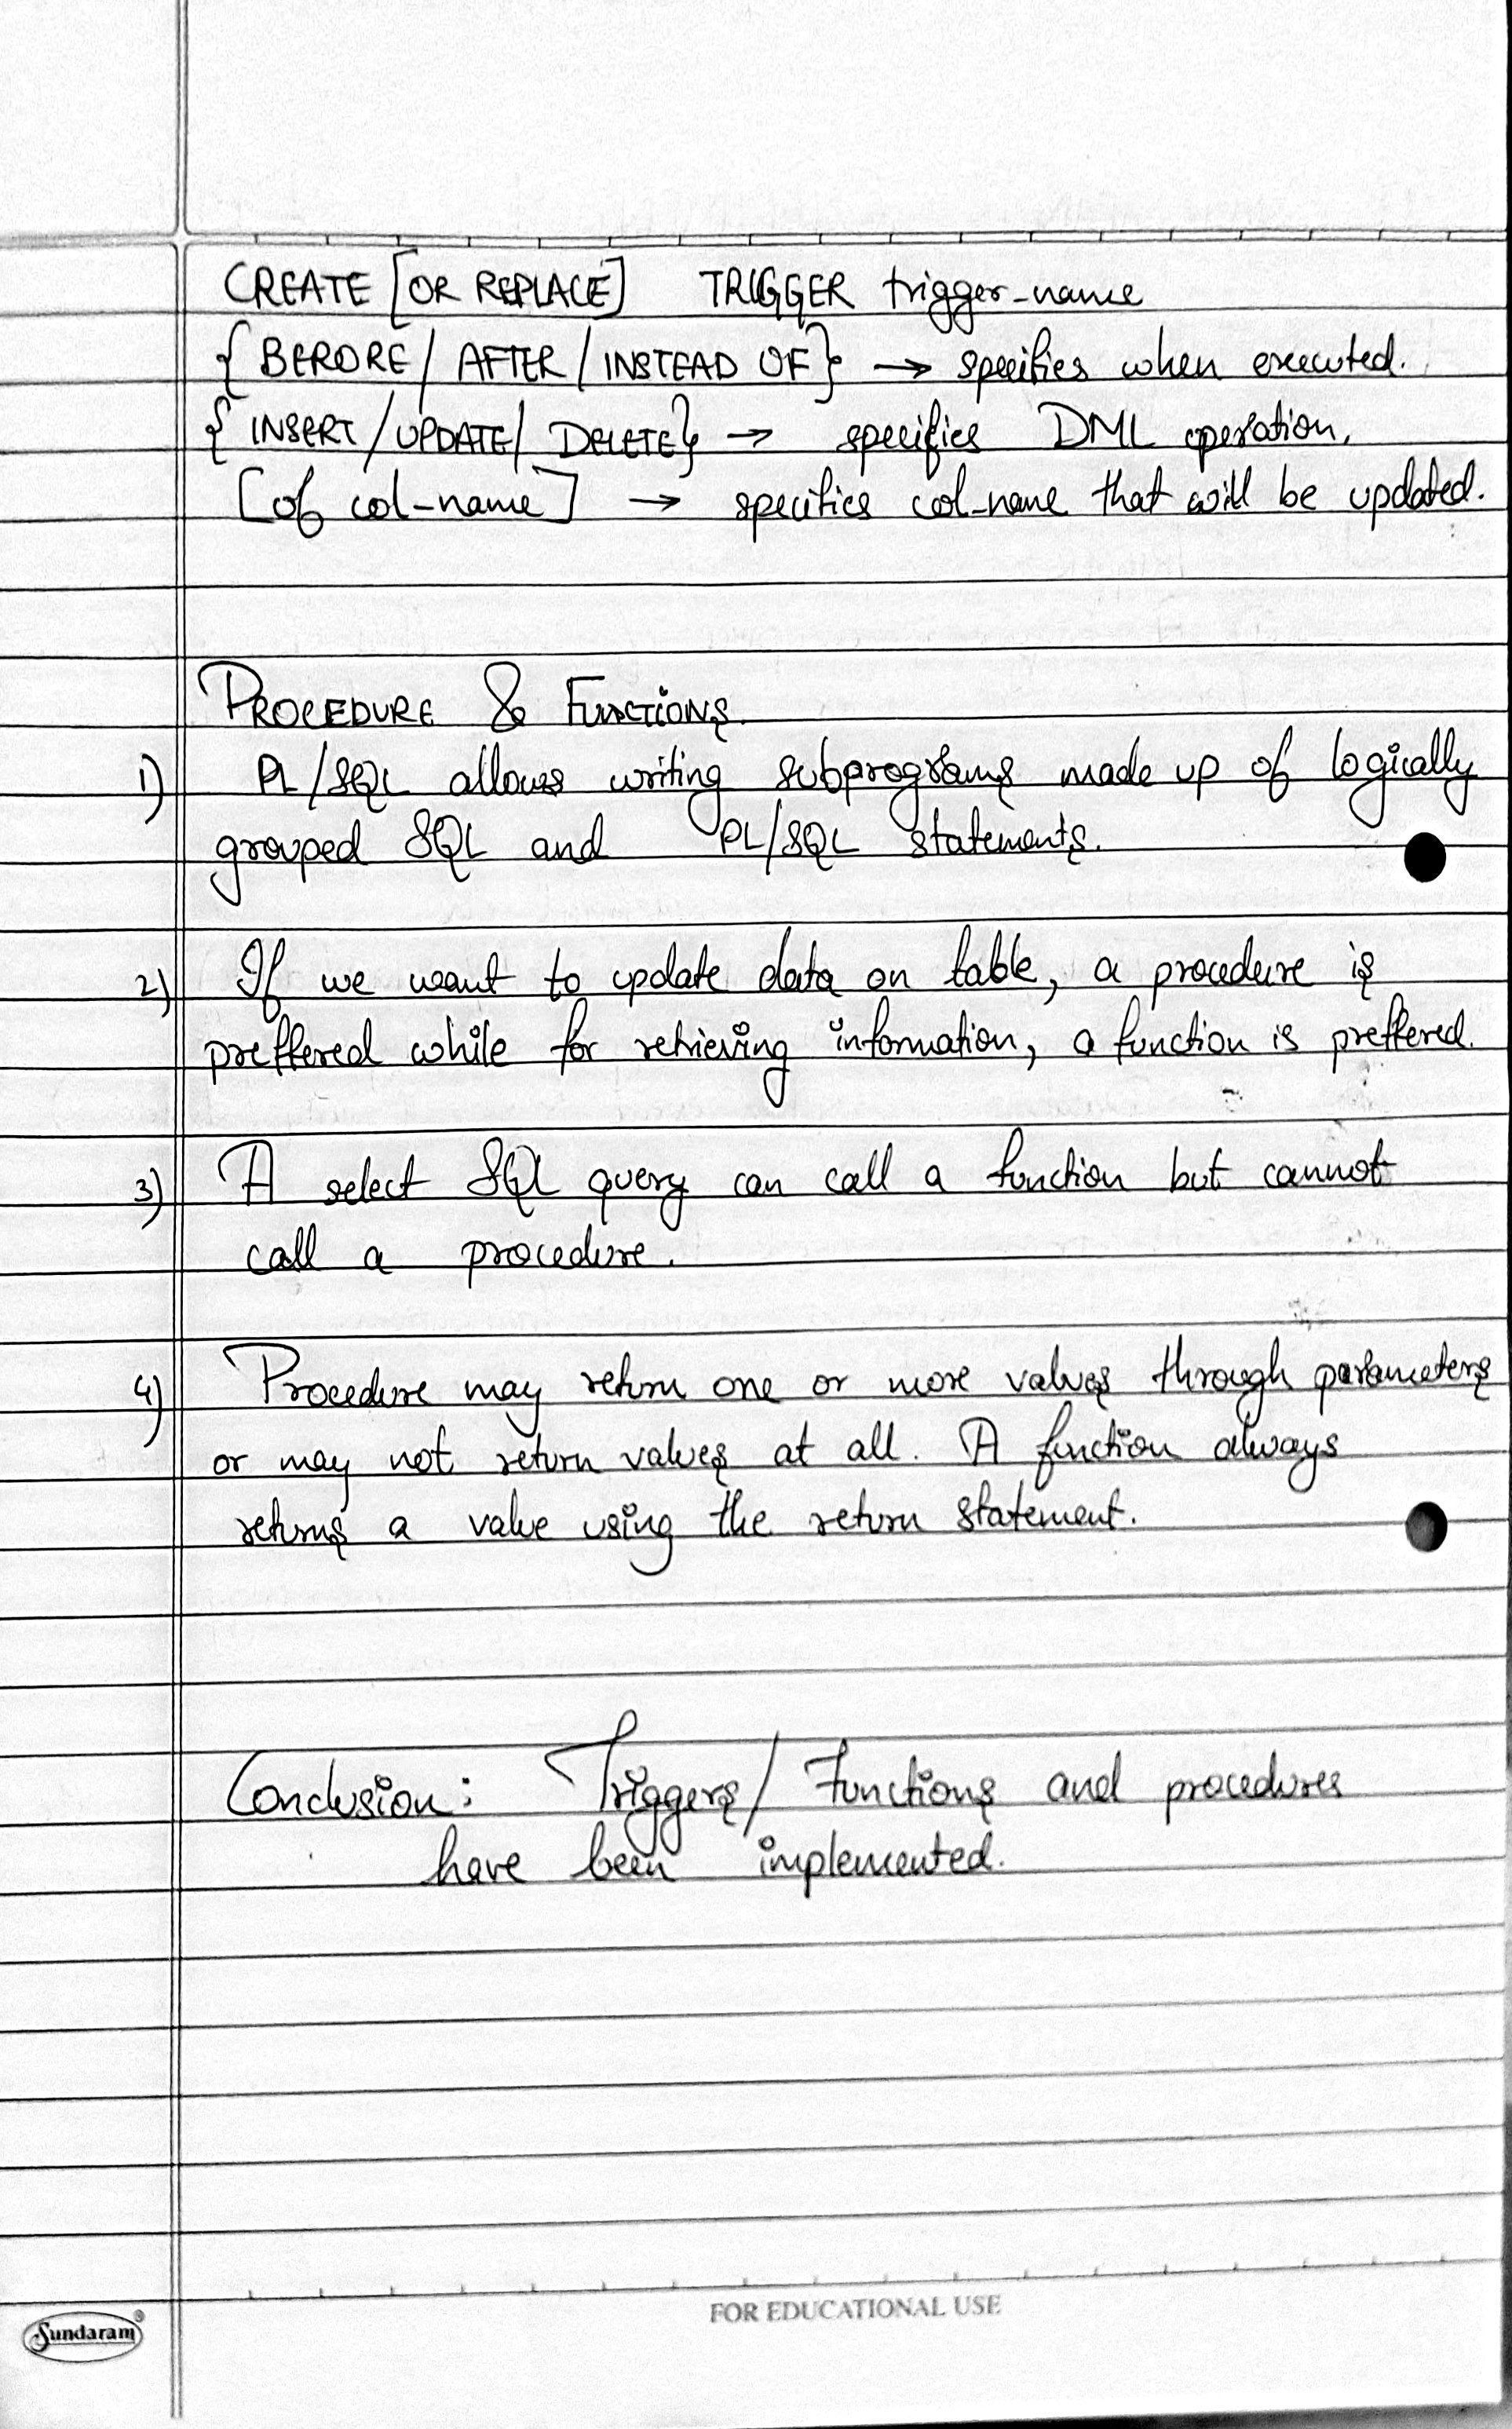 CREATE [OR REPLACE] TRIGGER trigger-name
{ BERORE / AFTER / INSTEAD OF} → specifies when executed.
{ INSERT / UPDATE / DELETE} → specifies DML operation.
[of col-name] → specifies col-name that will be updated.
PROCEDURE & FUNCTIONS.
1) PL/SQL allows writing subprograms made up of logically
grouped SQL and PL/SQL statements.
2) If we want to update data on table, a procedure is
preffered while for retrieving information, a function is preffered.
3) A select SQL query can call a function but cannot
call a procedure.
4) Procedure may return one or more values through parameters
or may not return values at all. A function always
returns a value using the return statement.
Conclusion: Triggers/ Functions and procedures
have been implemented.
FOR EDUCATIONAL USE
Sundaram®